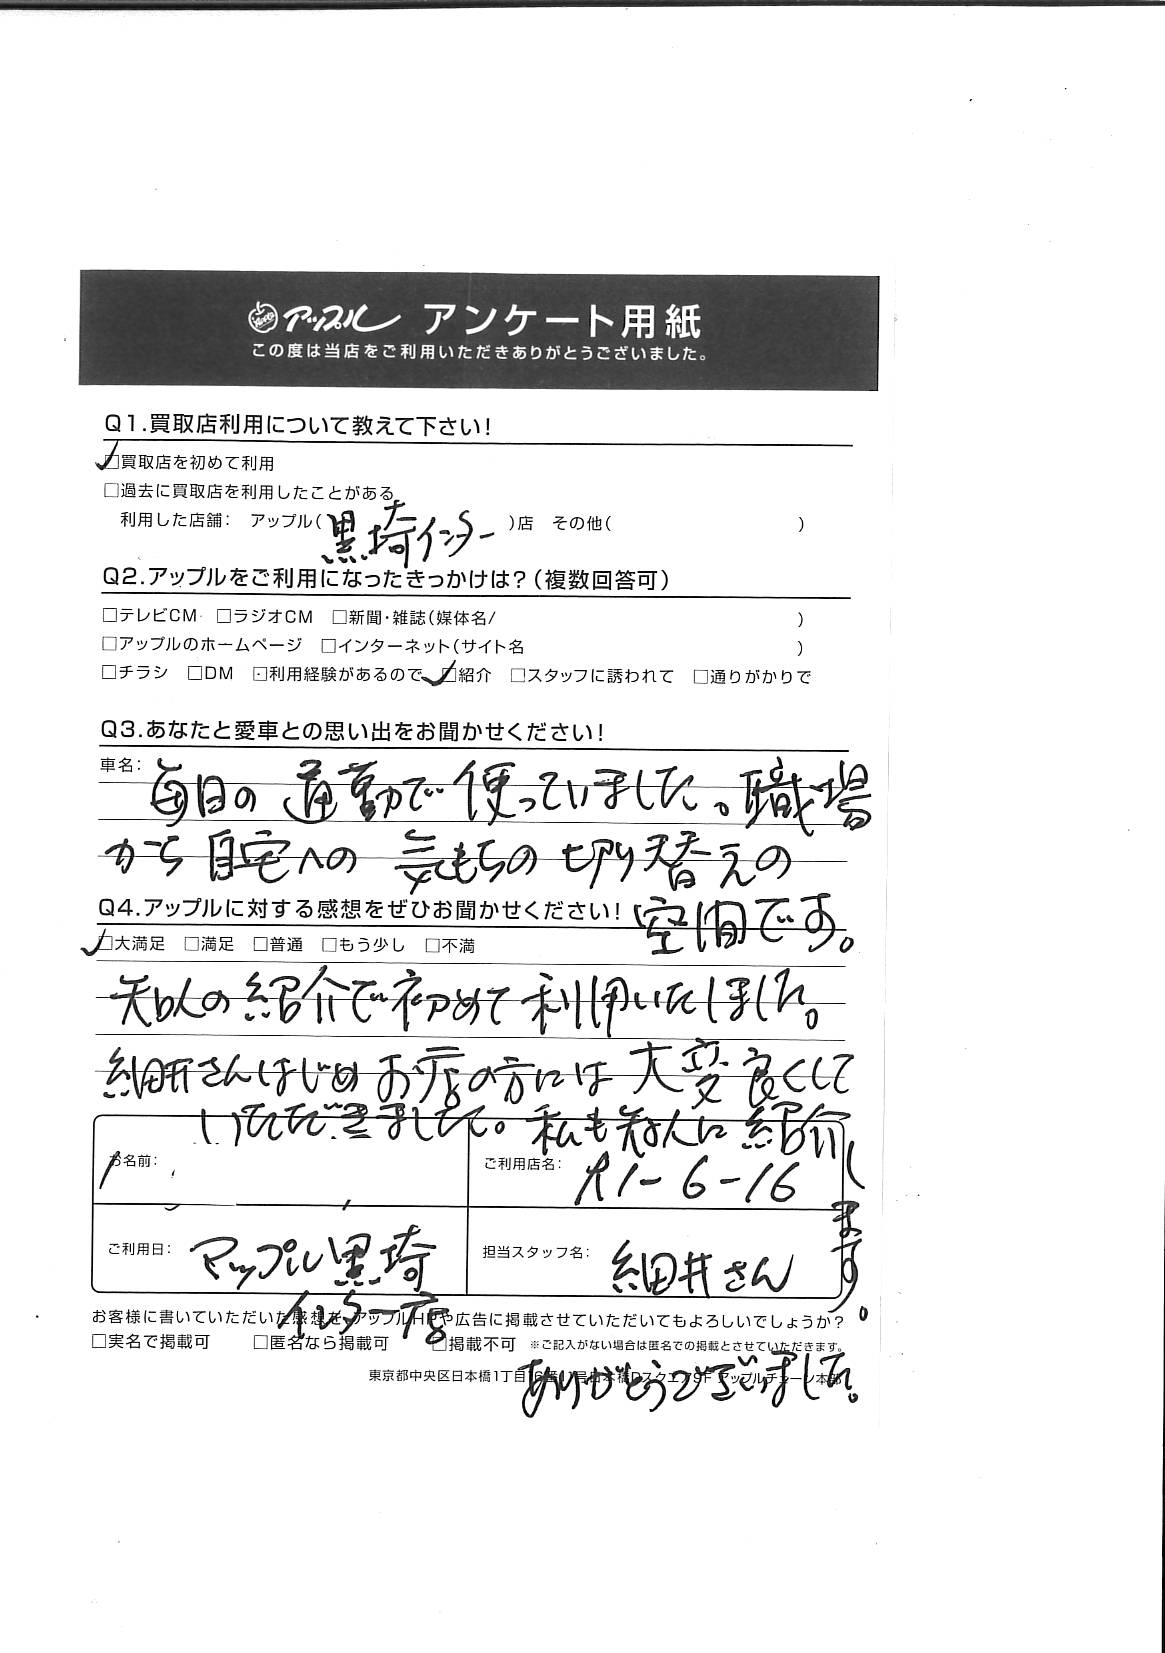 アップル アンケート用紙
この度は当店をご利用いただきありがとうございました。
Q1.買取店利用について教えて下さい!
□買取店を初めて利用
□過去に買取店を利用したことがある
利用した店舗: アップル(黒埼インター)店 その他( )
Q2.アップルをご利用になったきっかけは?(複数回答可)
□テレビCM □ラジオCM □新聞・雑誌(媒体名/ )
□アップルのホームページ □インターネット(サイト名 )
□チラシ □DM □利用経験があるので □紹介 □スタッフに誘われて □通りがかりで
Q3.あなたと愛車との思い出をお聞かせください!
車名:
毎日の通勤で使っていました。職場
から自宅への気もちの切り替えの
空間です。
Q4.アップルに対する感想をぜひお聞かせください!
□大満足 □満足 □普通 □もう少し □不満
知人の紹介で初めて利用いたしました。
細井さんはじめお店の方には大変良くして
いただきました。私も知人に紹介します。
お名前:
ご利用店名: R1-6-16
ご利用日: アップル黒埼
インター店
担当スタッフ名: 細井さん
お客様に書いていただいた感想を、アップルHPや広告に掲載させていただいてもよろしいでしょうか?
□実名で掲載可 □匿名なら掲載可 □掲載不可 ※ご記入がない場合は匿名での掲載とさせていただきます。
東京都中央区日本橋1丁目16番11号日本橋Dスクエア9F アップルチェーン本部
ありがとうございました。